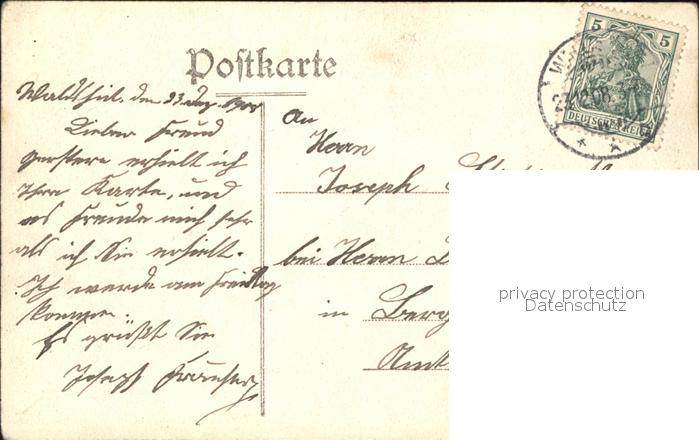 Postkarte
5 5
DEUTSCHES REICH
Waldshut, den 23. Dez. 1908
Lieber Freund
gestern erhielt ich
Ihre Karte, und
es freude mich sehr
als ich Sie erhielt.
Ich werde am Freitag
kommen.
Es grüßt Sie
Joseph
An
Herrn
Joseph
bei Herrn
in Berg
Amt
privacy protection
Datenschutz